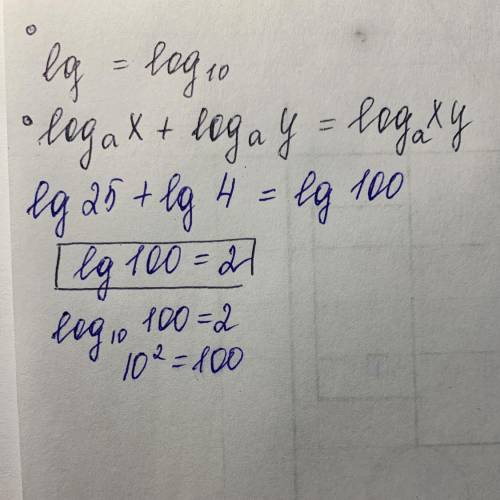 lg = log₁₀
logₐx + logₐy = logₐxy
lg 25 + lg 4 = lg 100
lg 100 = 2
log₁₀ 100 = 2
10² = 100